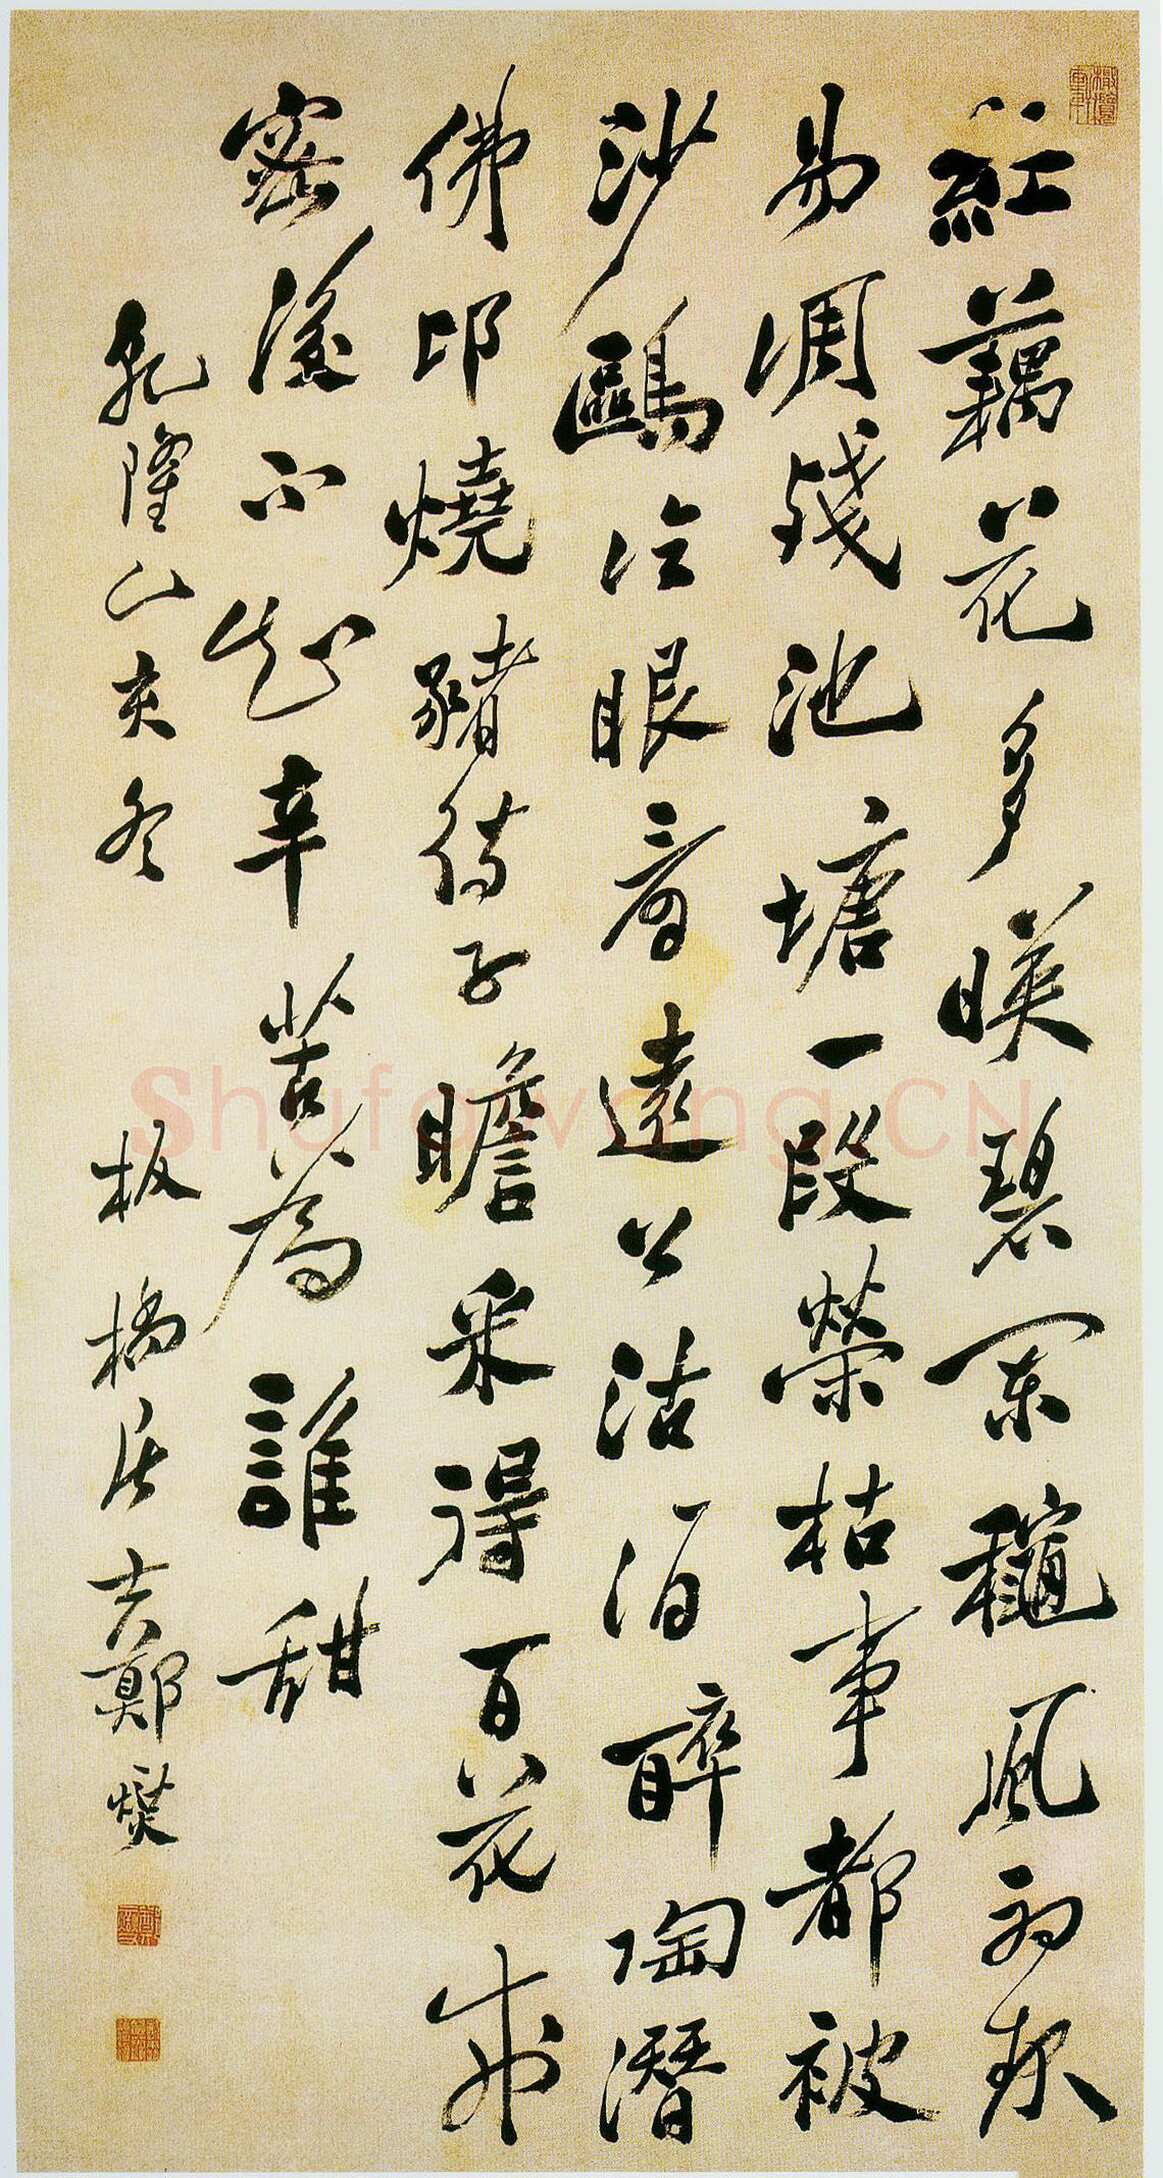 紅藕花多暎碧闌龝風初
易凋殘池塘一段榮枯事都被
沙鷗冷眼看遠公沽酒醉陶潛
佛印燒豬待子瞻采得百花成
蜜後不知辛苦為誰甜
乾隆乙亥冬 板橋居士鄭燮
Shufawang.CN